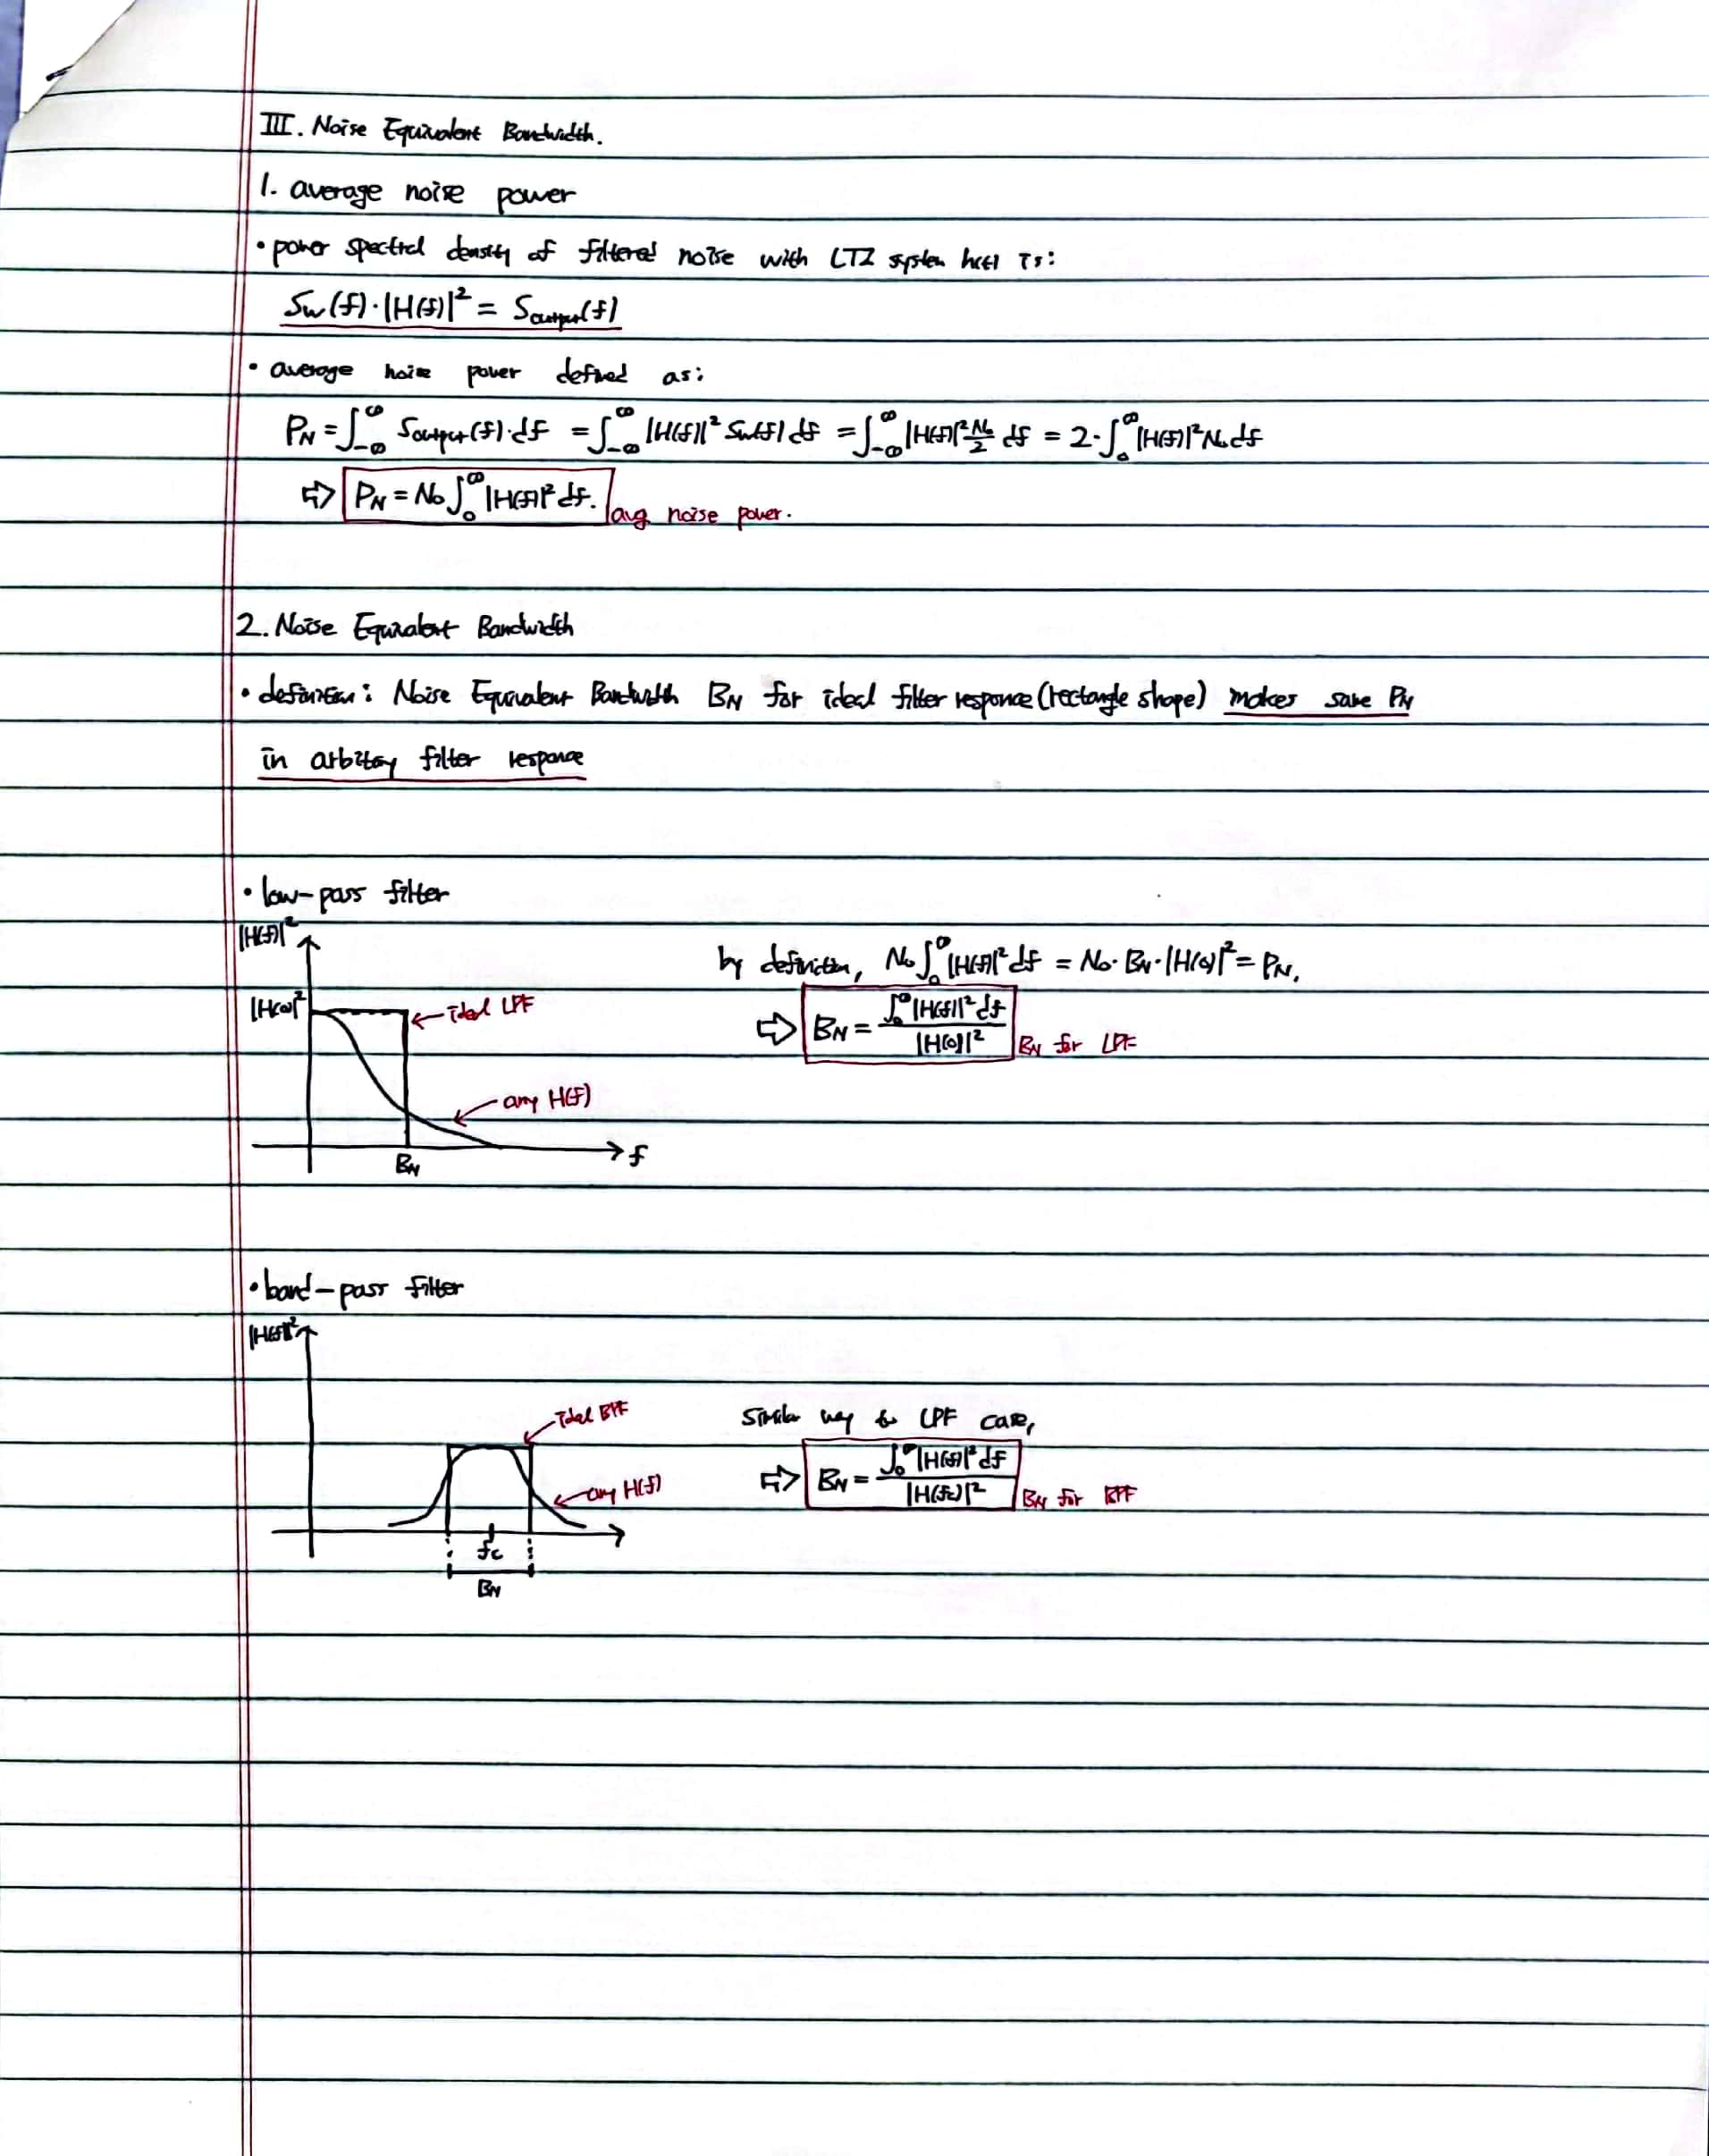 III. Noise Equivalent Bandwidth.
1. average noise power
• power spectral density of filtered noise with LTI system h(t) is:
Sw(f)·|H(f)|² = Soutput(f)
• average noise power defined as:
PN = ∫_{-∞}^{∞} Soutput(f)·df = ∫_{-∞}^{∞} |H(f)|² Sw(f) df = ∫_{-∞}^{∞} |H(f)|² N₀/2 df = 2·∫_{0}^{∞} |H(f)|² N₀ df
⇨ PN = N₀ ∫_{0}^{∞} |H(f)|² df. avg noise power.
2. Noise Equivalent Bandwidth
• definition: Noise Equivalent Bandwidth BN for ideal filter response (rectangle shape) makes same PN
in arbitary filter response
• low-pass filter
|H(f)|²
by definition, N₀ ∫_{0}^{∞} |H(f)|² df = N₀·BN·|H(0)|² = PN.
|H(0)|²
← ideal LPF
⇨ BN = ∫_{0}^{∞} |H(f)|² df / |H(0)|² BN for LPF
any H(f)
f
BN
• band-pass filter
|H(f)|²
ideal BPF
Similar way to LPF case,
⇨ BN = ∫_{0}^{∞} |H(f)|² df / |H(fc)|² BN for BPF
any H(f)
fc
BN